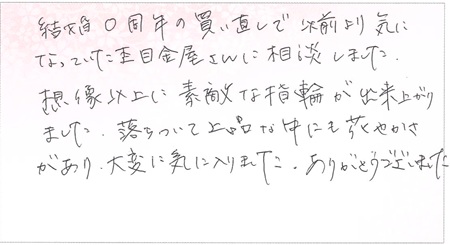 結婚10周年の買い直しで以前より気に
なっていた杢目金屋さんに相談しました.
想像以上に素敵な指輪が出来上がり
ました. 落ちついて上品な中にも花やかさ
があり、大変に気に入りました. ありがとうございました